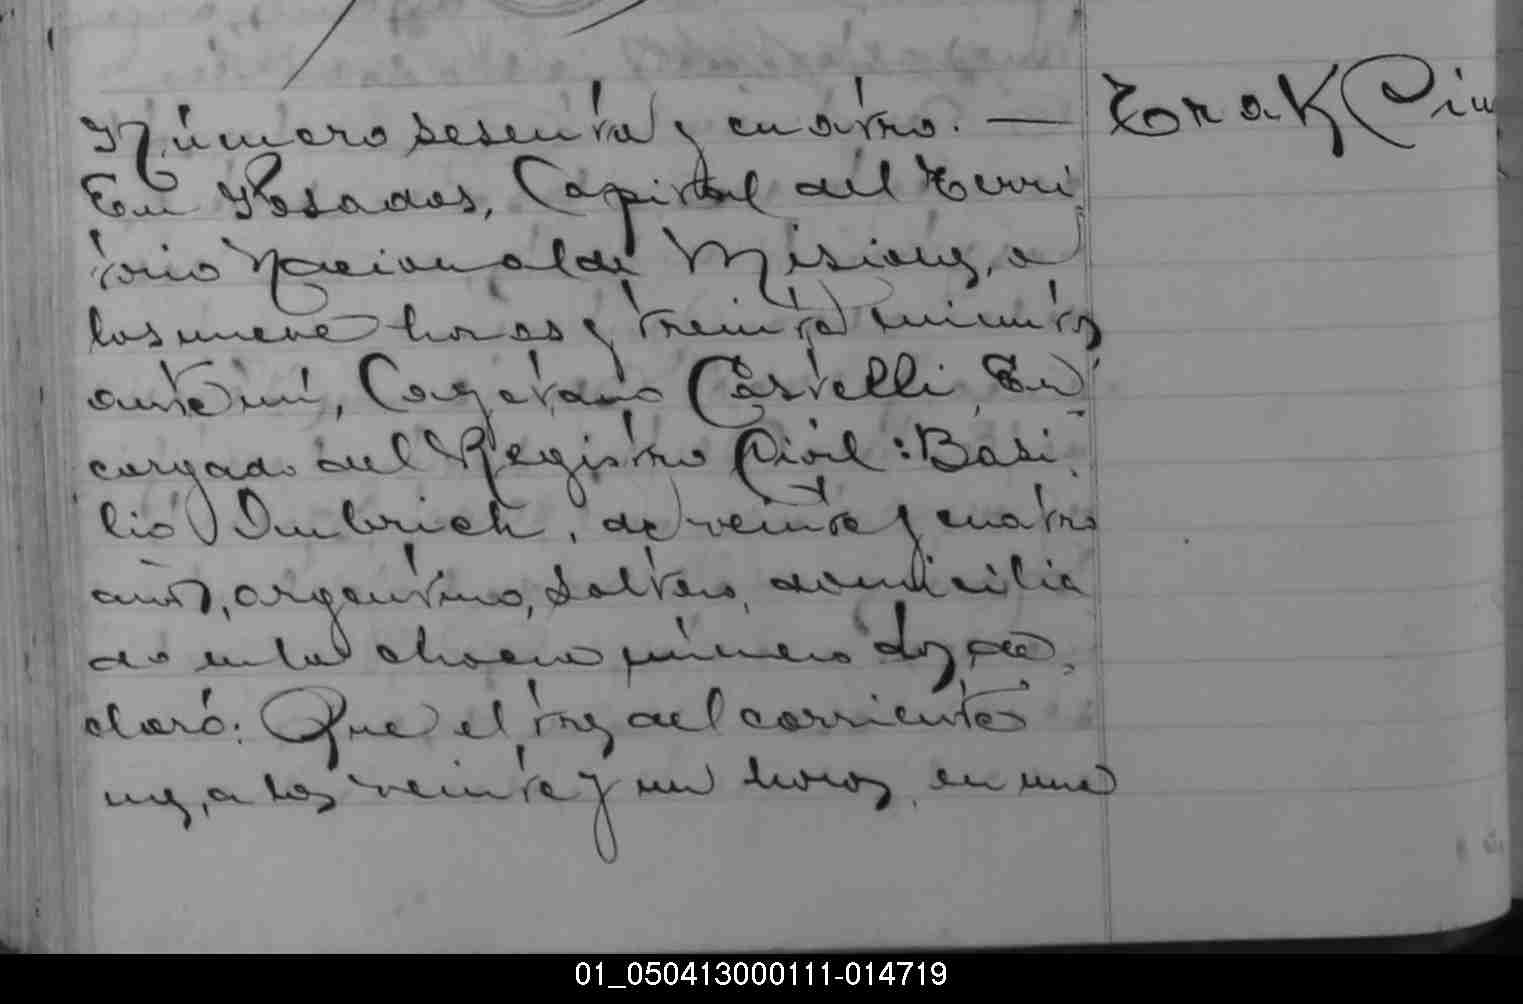 Número sesenta y cuatro. —
En Posadas, Capital del Terri
torio Nacional de Misiones, a
las nueve horas y treinta minutos
ante mí, Cayetano Castelli, En
cargado del Registro Civil: Basi
lio Imbrich, de veinte y cuatro
años, argentino, soltero, domicilia
do en la chacra número doz, de
claró: Que el tres del corriente
mes, a las veinte y un horas, en una
01_050413000111-014719